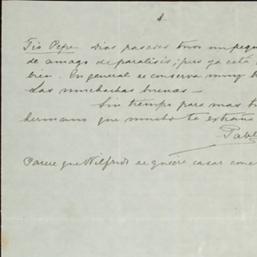 4.
Tio Pepe - Dias pasados tuvo un peque
de amago de paralisis; pero ya está
bien. En general se conserva muy
Las muchachas buenas -
Sin tiempo para mas
hermano que mucho te extraña
Pabl
Parece que Wilfredo se quiere casar con